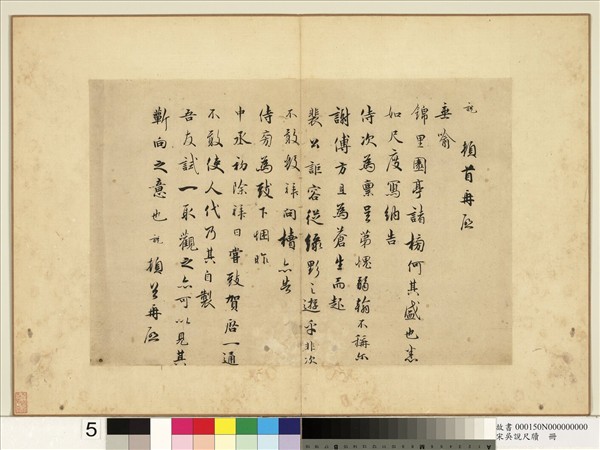 說頓首再啟
垂喻
錦里園亭諸榜何其盛也悉
如尺度寫納告
侍次為稟呈第愧弱翰不稱爾
謝傅方且為蒼生而起
裴公詎容從綠野之遊乎非次
不敢數稟問櫝亦告
侍旁為致下悃昨
中丞初除稟日嘗致賀啟一通
不敢使人代乃其自製
吾友試一取觀之亦可以見其
蘄向之意也說頓首再啟
5
故書 000150N000000000
宋吳說尺牘 冊